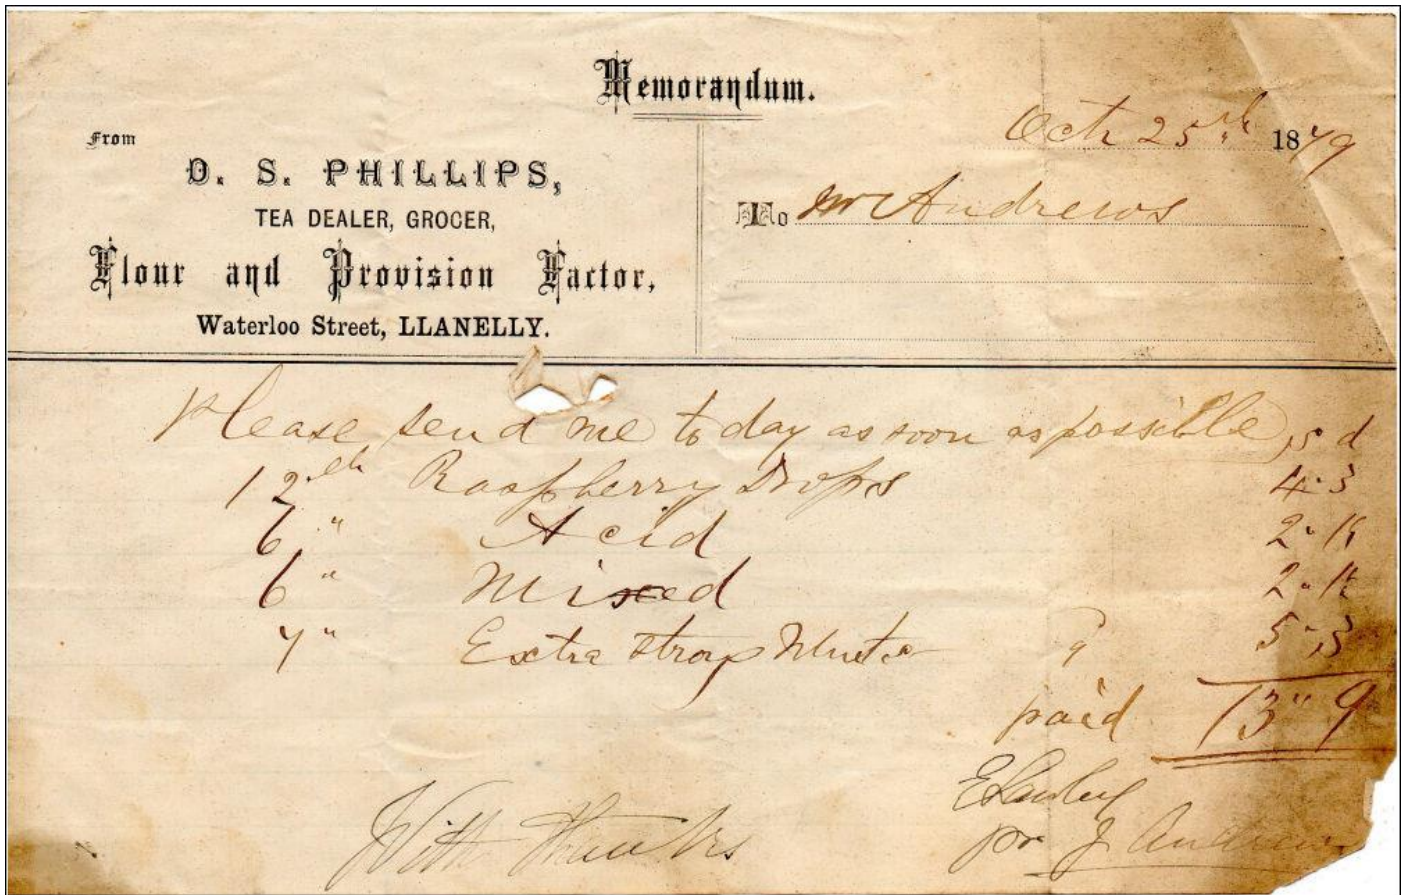 Memorandum.
Oct 25th 1879
From
D. S. PHILLIPS,
TEA DEALER, GROCER,
Flour and Provision Factor,
Waterloo Street, LLANELLY.
To Mr Andrews
Please send me to day as soon as possible s d
12 lb Raspberry Drops 4.3
6 " Acid 2.1½
6 " Mixed 2.1½
7 " Extra strong Mints 9 5.3
paid 13" 9
With Thanks
pr J Andrews